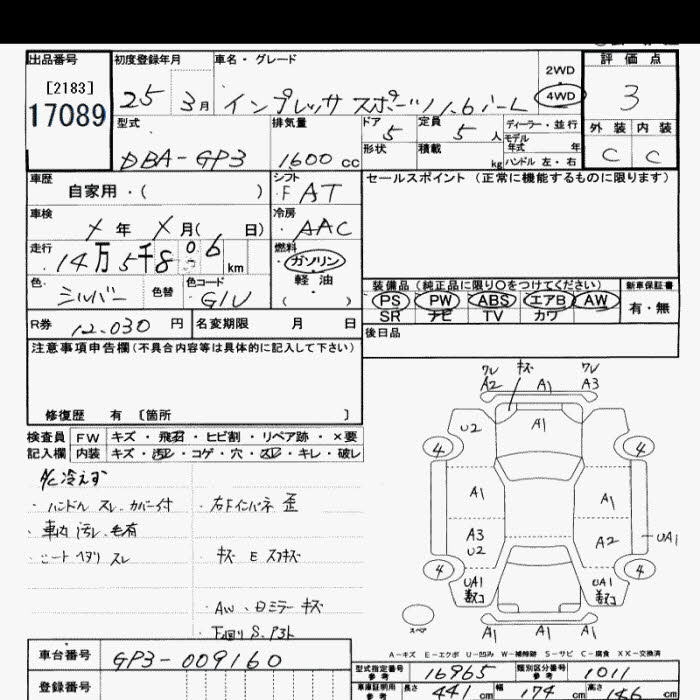 出品番号 初度登録年月 車名・グレード 評価点
[2183] 2WD
17089 25 3月 インプレッサ スポーツ 1.6i-L 4WD 3
型式 排気量 ドア 定員 ディーラー・並行 外装 内装
DBA-GP3 1600 cc 5 5 人 モデル年式 年 C C
形状 積載 kg ハンドル 左・右
車歴 シフト セールスポイント (正常に機能するものに限ります)
自家用・( ) F AT
車検 冷房
X 年 X 月( 日) AAC
走行 燃料
14万5千806 km ガソリン
軽油
( )
色 色替 色コード 装備品 (純正品に限り○をつけてください) 新車保証書
シルバー G1U PS PW ABS エアB AW 有・無
SR ナビ TV カワ
R券 12,030 円 名変期限 月 日 後日品
注意事項申告欄 (不具合内容等は具体的に記入して下さい)
修復歴 有 〔箇所 〕
検査員 FW キズ・飛石・ヒビ割・リペア跡・×要
記入欄 内装 キズ・汚レ・コゲ・穴・スレ・キレ・破レ
A/C冷えず
・ハンドル スレ カバー付 ・右Fインパネ 歪
・車内 汚レ 毛有
・シート ヘタリ スレ キズ E スリキズ
・AW、ミラー キズ
・下回り S
ワレ キズ ワレ
A2 A1 A3
U2 A1
4 4
A1 A1
A3 A2 UA1
U2
4 4
UA1 UA1
スペア A1 A1 A1
A-キズ E-エクボ U-凹み W-補修跡 S-サビ C-腐食 XX-交換済
車台番号 GP3-009160
型式指定番号 参考 16965 類別区分番号 参考 1011
登録番号
車庫証明用 参考 長さ 441 cm 幅 174 cm 高さ 146 cm